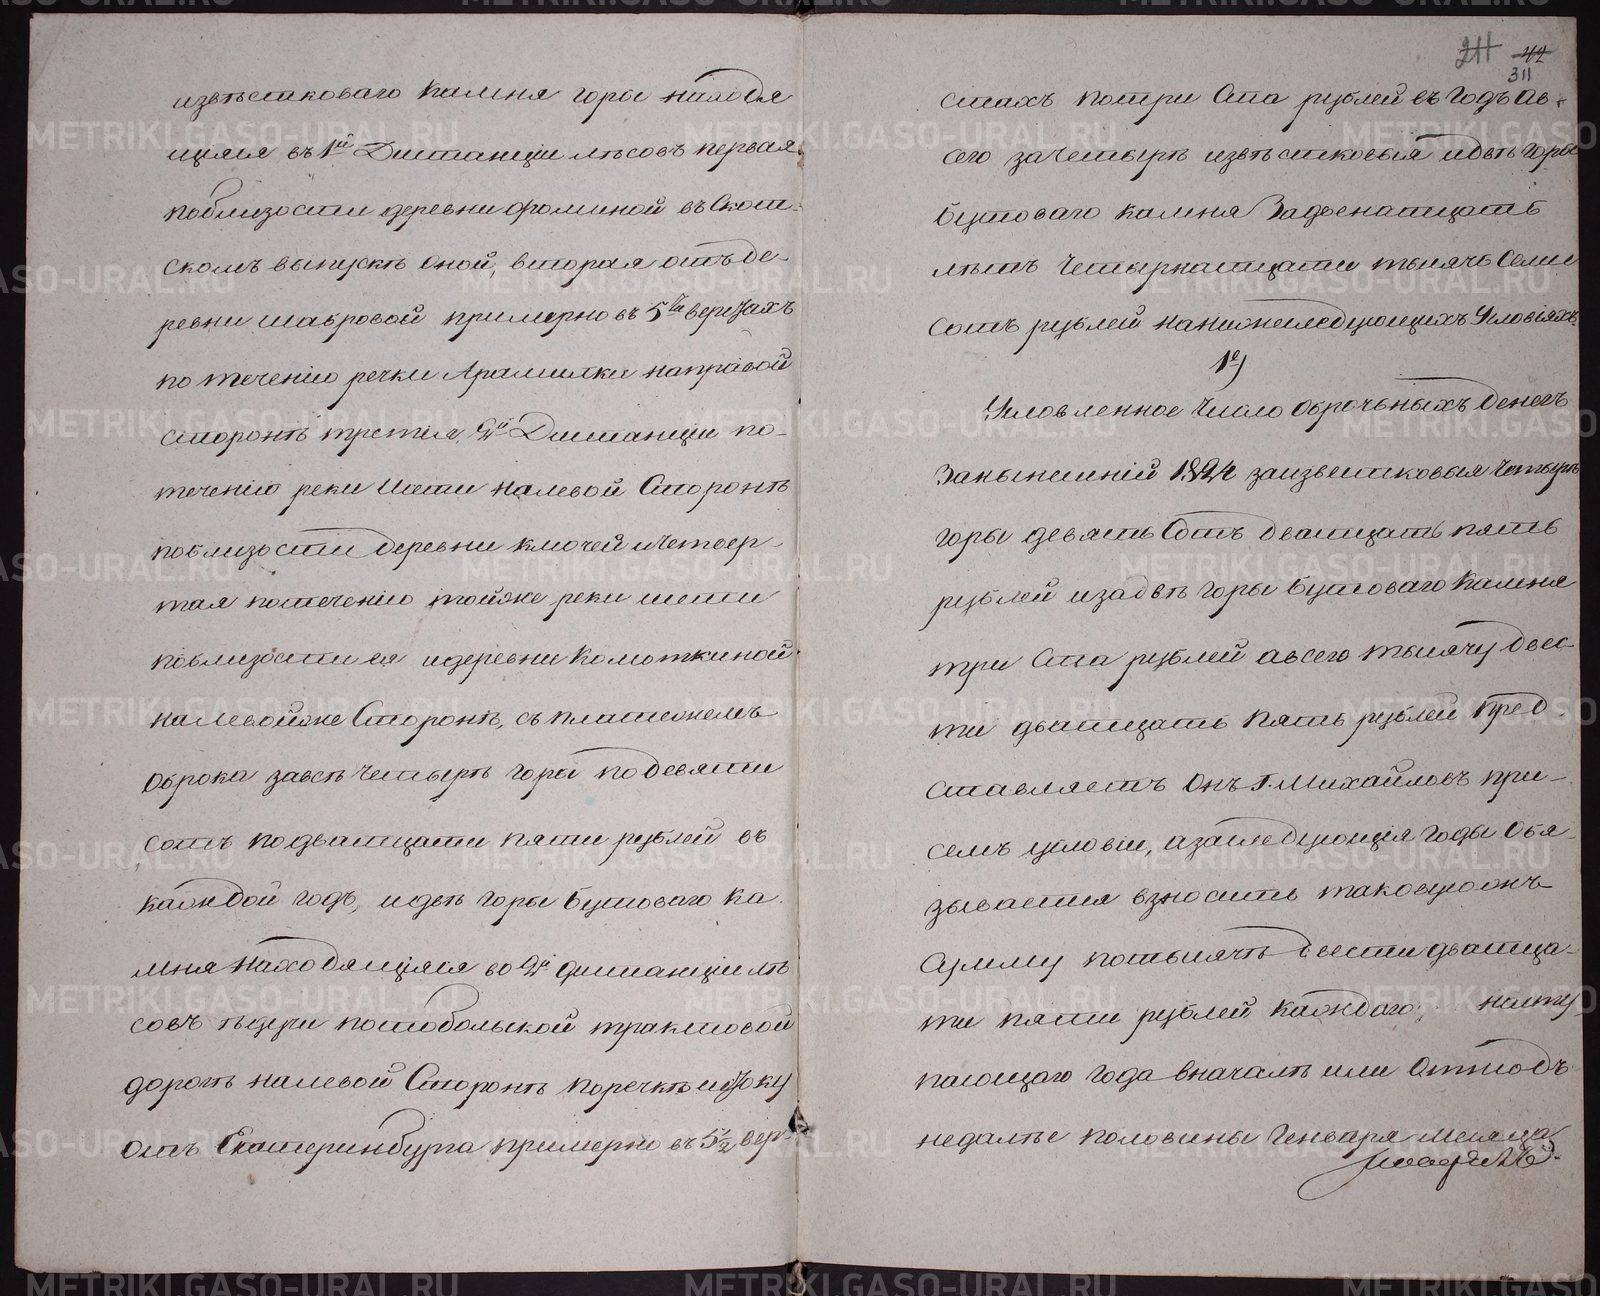 известковаго камня горы находя
щіяся въ 1й Дистанціи лѣсовъ первая
поблизости деревни Фоминой въ Скот-
скомъ выпускѣ Оной, вторая отъ де-
ревни шабровой примерно въ 5ти верстахъ
по теченію речки Арамилки направой
сторонѣ третія 2й Дистанціи по-
теченію реки Исети налевой Сторонѣ
поблизости деревни ключей и четвер-
тая потеченію тойже реки исети
поблизости ея и деревни Колоткиной
налевойже Сторонѣ, съ платежемъ
оброка завсѣ четырѣ горы по девяти
сотъ подватцати пяти рублей въ
каждой годъ, и двѣ горы бутоваго ка
мня находящіяся во 2й дистанціи лѣ
совъ ѣдучи потобольской трактовой
дорогѣ налевой Сторонѣ поречкѣ истоку
отъ Екатеринбурга примерно въ 5½ вер-
211 42
311
стахъ потри Ста рублей въ годъ Ав-
сего зачетырѣ извѣстковыя и двѣ горы
бутоваго камня Задвенатцать
лѣтъ Четырнатцати тысячь Семи
Сотъ рублей нанижеследующихъ Условіяхъ.
1е)
Условленное Число оброчныхъ денегъ
Занынешній 1824 заизвестковыя четырѣ
горы девять Сотъ дватцать пять
рублей изадвѣ горы бутоваго камня
три Ста рублей авсего тысячу двес-
ти дватцать пять рублей пред-
ставляетъ Онъ Г. Михайловъ при-
семъ условіи, азаследующія годы Обя-
зывается взносить таковуюжъ
Сумму потысячѣ двести дватца-
ти пяти рублей каждаго насту
пающаго года вначалѣ или Отнюдъ
недалѣе половины Генваря месяца